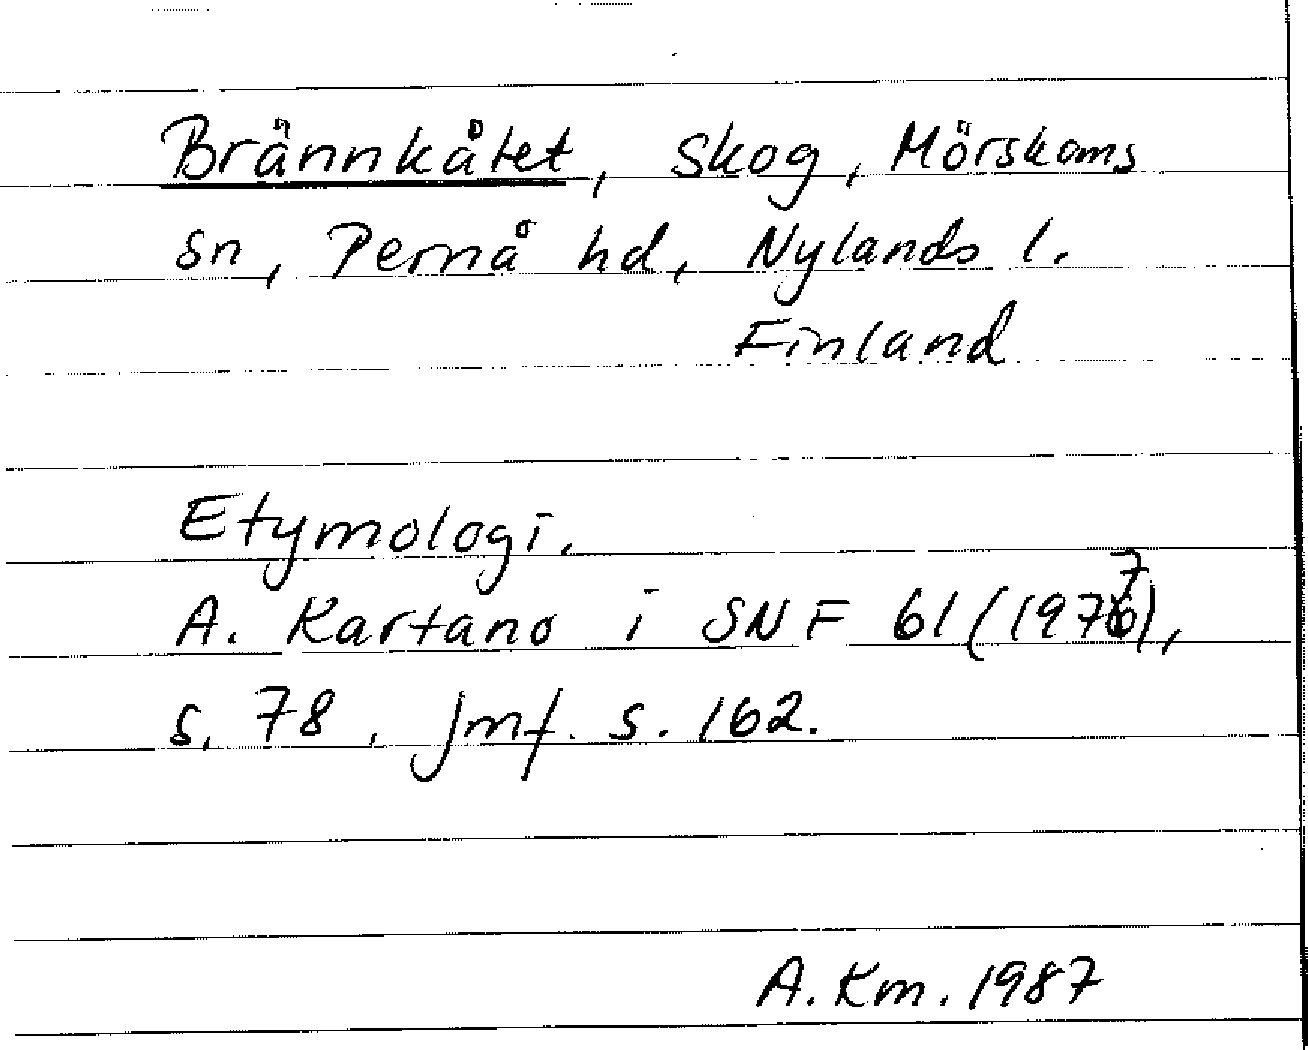 Brännkåtet, skog, Mörskoms
sn, Pernå hd, Nylands l.
Finland
Etymologi.
A. Kartano i SNF 61 (1977),
s. 78, jmf. s. 162.
A. Km. 1987